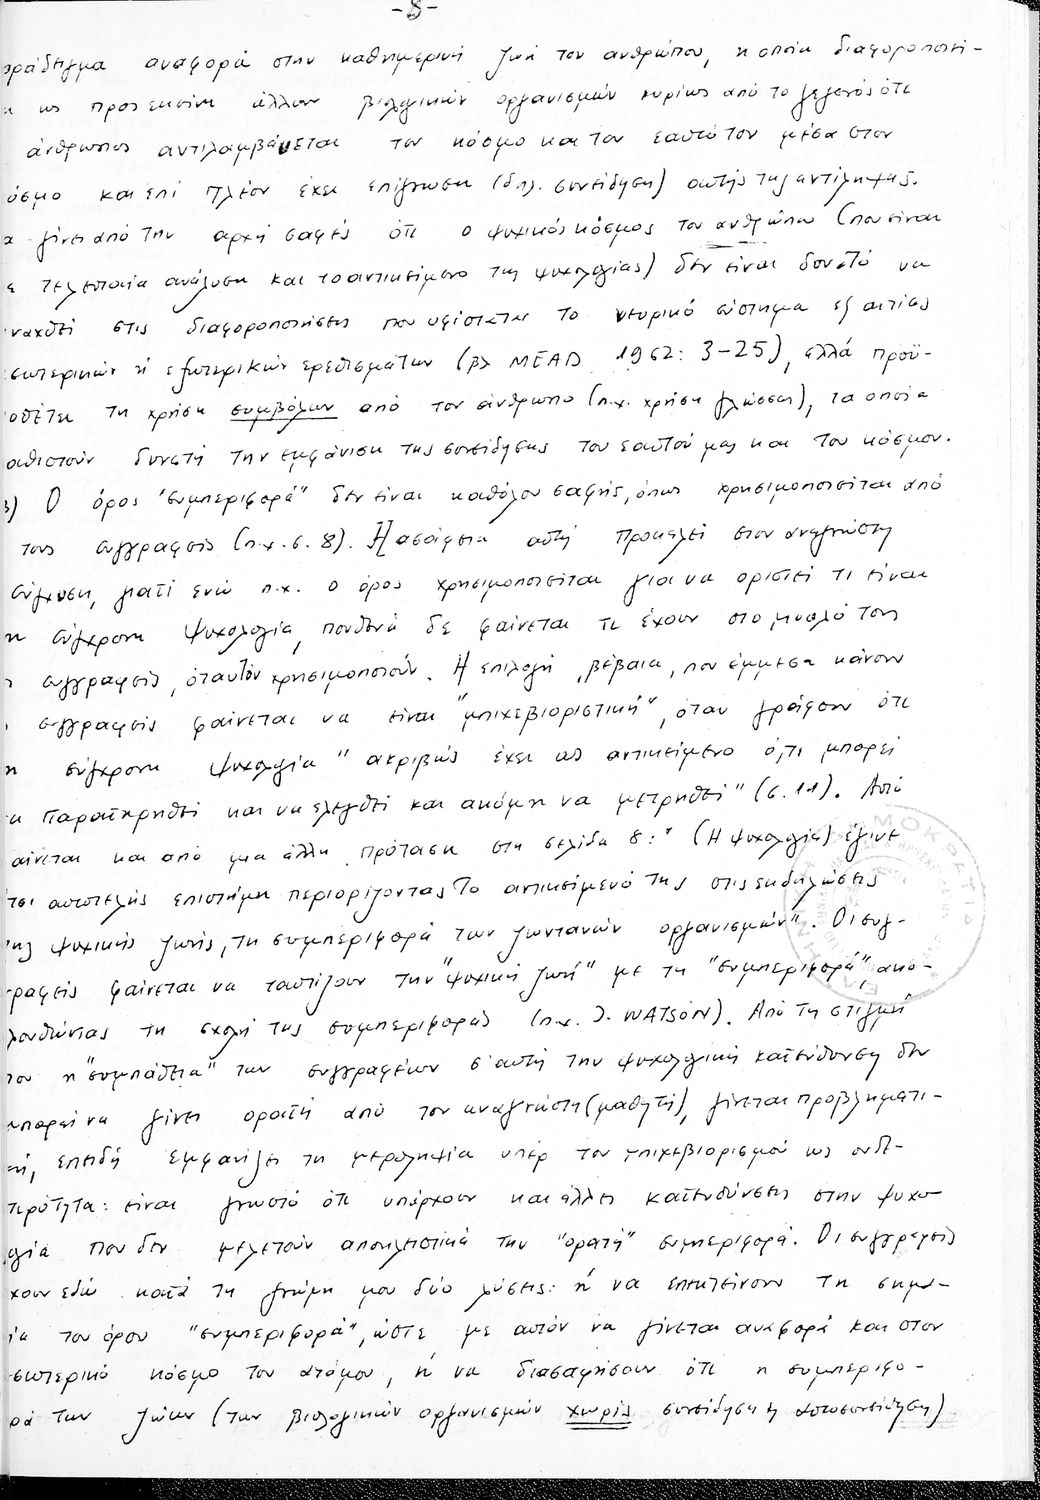 -8-
ράδειγμα αναφορά στην καθημερινή ζωή του ανθρώπου, η οποία διαφοροποιεί-
ως προς εκείνη άλλων βιολογικών οργανισμών κυρίως από το γεγονός ότι
άνθρωπος αντιλαμβάνεται τον κόσμο και τον εαυτό του μέσα στον
όσμο και επί πλέον έχει επίγνωση (δηλ. συνείδηση) αυτής της αντίληψης.
α γίνει από την αρχή σαφές ότι ο ψυχικός κόσμος του ανθρώπου (που είναι
ε τελευταία ανάλυση και το αντικείμενο της ψυχολογίας) δεν είναι δυνατό να
ναχθεί στις διαφοροποιήσεις που υφίσταται το νευρικό σύστημα εξ αιτίας
σωτερικών ή εξωτερικών ερεθισμάτων (βλ MEAD 1962: 3-25), αλλά προϋ-
οθέτει τη χρήση συμβόλων από τον άνθρωπο (π.χ. χρήση γλώσσας), τα οποία
αθιστούν δυνατή την εμφάνιση της συνείδησης του εαυτού μας και του κόσμου.
β) Ο όρος "συμπεριφορά" δεν είναι καθόλου σαφής, όπως χρησιμοποιείται από
τους συγγραφείς (π.χ. σ. 8). Η ασάφεια αυτή προκαλεί στον αναγνώστη
σύγχυση, γιατί ενώ π.χ. ο όρος χρησιμοποιείται για να ορίσει τι είναι
η σύγχρονη ψυχολογία, πουθενά δε φαίνεται τι έχουν στο μυαλό τους
ι συγγραφείς, όταν τον χρησιμοποιούν. Η επιλογή, βέβαια, που έμμεσα κάνουν
ι συγγραφείς φαίνεται να είναι "μπιχεβιοριστική", όταν γράφουν ότι
η σύγχρονη ψυχολογία "ακριβώς έχει ως αντικείμενο ό,τι μπορεί
να παρατηρηθεί και να ελεγχθεί και ακόμη να μετρηθεί" (σ. 11). Αυτό
αίνεται και από μια άλλη πρόταση στη σελίδα 8: "(Η ψυχολογία) έγινε
τσι αυτοτελής επιστήμη περιορίζοντας το αντικείμενό της στις εκδηλώσεις
της ψυχικής ζωής, τη συμπεριφορά των ζωντανών οργανισμών". Οι συγ-
γραφείς φαίνεται να ταυτίζουν την "ψυχική ζωή" με τη "συμπεριφορά", ακο-
λουθώντας τη σχολή της συμπεριφοράς (π.χ. J. WATSON). Από τη στιγμή
που η "συμπάθεια" των συγγραφέων σ' αυτή την ψυχολογική κατεύθυνση δεν
μπορεί να γίνει ορατή από τον αναγνώστη (μαθητή), γίνεται προβληματι-
κή, επειδή εμφανίζει τη μεροληψία υπέρ του μπιχεβιορισμού ως ουδε-
τερότητα: είναι γνωστό ότι υπάρχουν και άλλες κατευθύνσεις στην ψυχο-
ογία που δεν μελετούν αποκλειστικά την "ορατή" συμπεριφορά. Οι συγγραφείς
χουν εδώ κατά τη γνώμη μου δύο λύσεις: ή να επεκτείνουν τη σημα-
ία του όρου "συμπεριφορά", ώστε με αυτόν να γίνεται αναφορά και στον
σωτερικό κόσμο του ατόμου, ή να διασαφήσουν ότι η συμπεριφο-
ρά των ζώων (των βιολογικών οργανισμών χωρίς συνείδηση ή αυτοσυνείδηση)